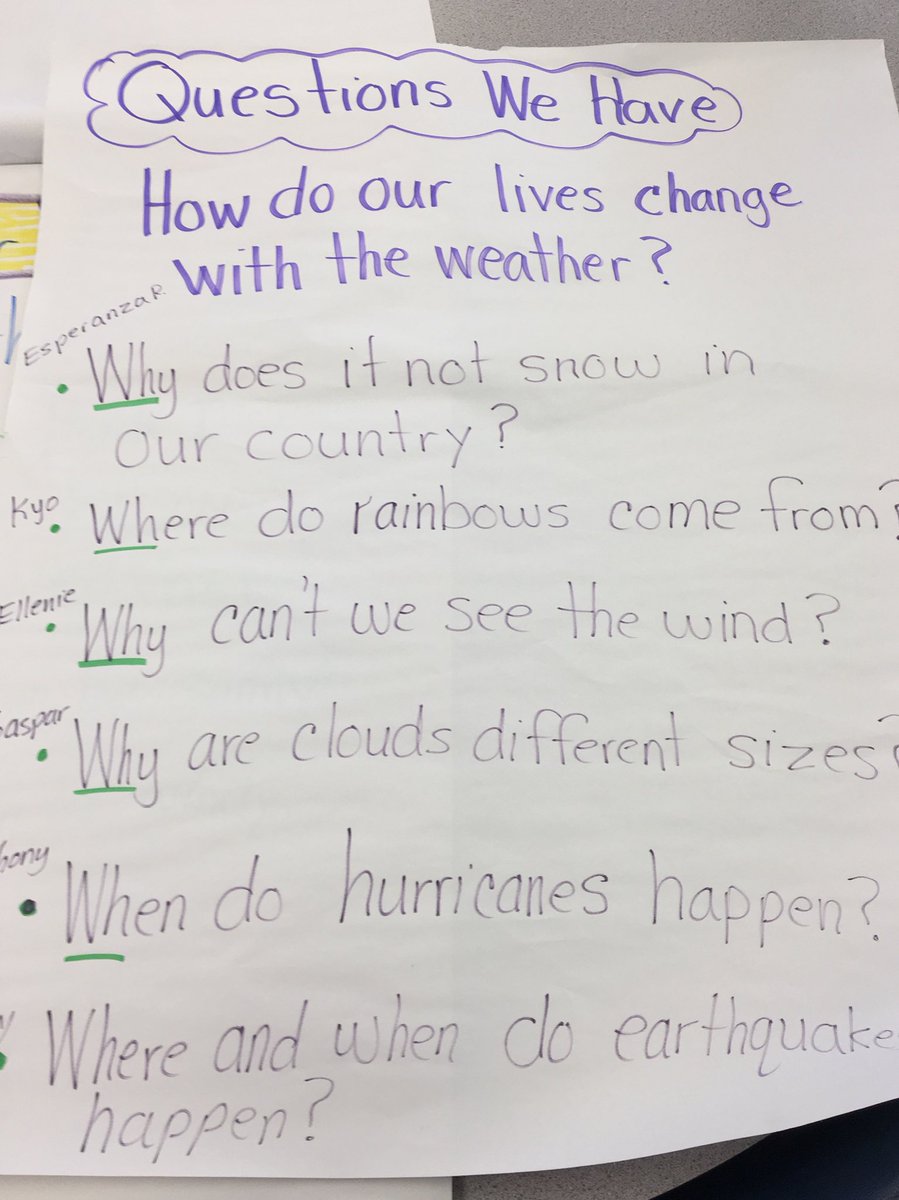 Questions We Have
How do our lives change
with the weather?
Esperanza R.
Why does it not snow in
our country?
Kyo
Where do rainbows come from?
Ellenie
Why can't we see the wind?
aspar
Why are clouds different sizes?
bony
When do hurricanes happen?
Where and when do earthquake
happen?